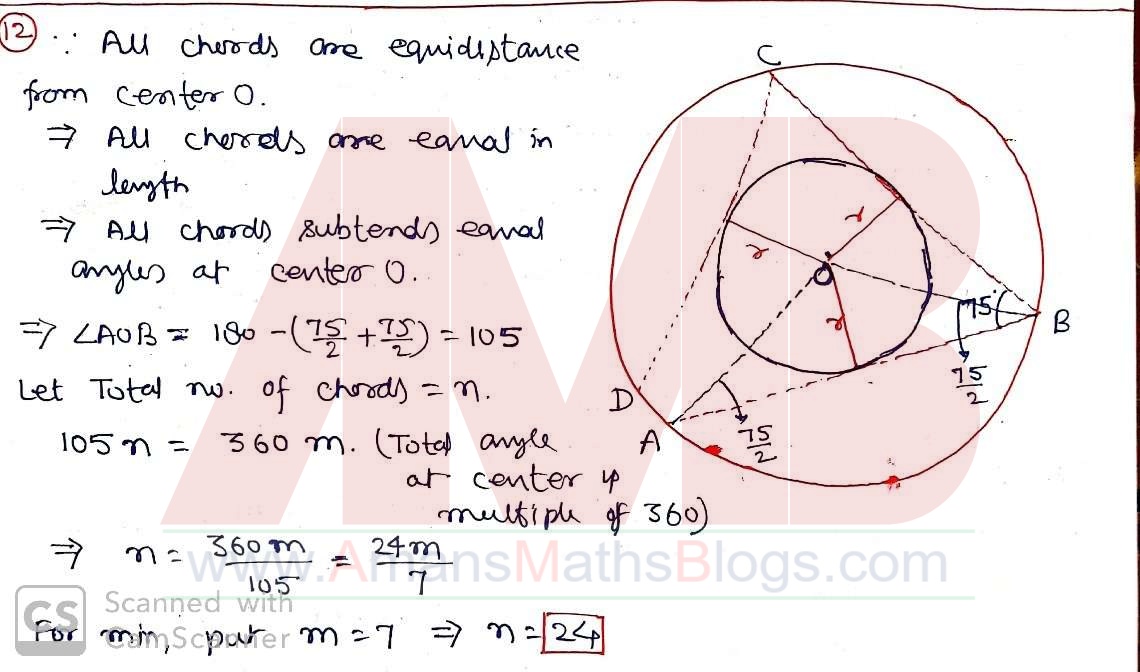 12 ∵ All chords are equidistance
from center O.
⇒ All chords are equal in
length
⇒ All chords subtends equal
angles at center O.
⇒ ∠AOB = 180 - (75/2 + 75/2) = 105
Let Total no. of chords = n.
105n = 360 m. (Total angle
at center is
multiple of 360)
⇒ n = 360m/105 = 24m/7
For min, put m = 7 ⇒ n = 24
C
r
r
O
r
75°
B
75/2
D
A
75/2
AMB
www.AmansMathsBlogs.com
CS
Scanned with
CamScanner